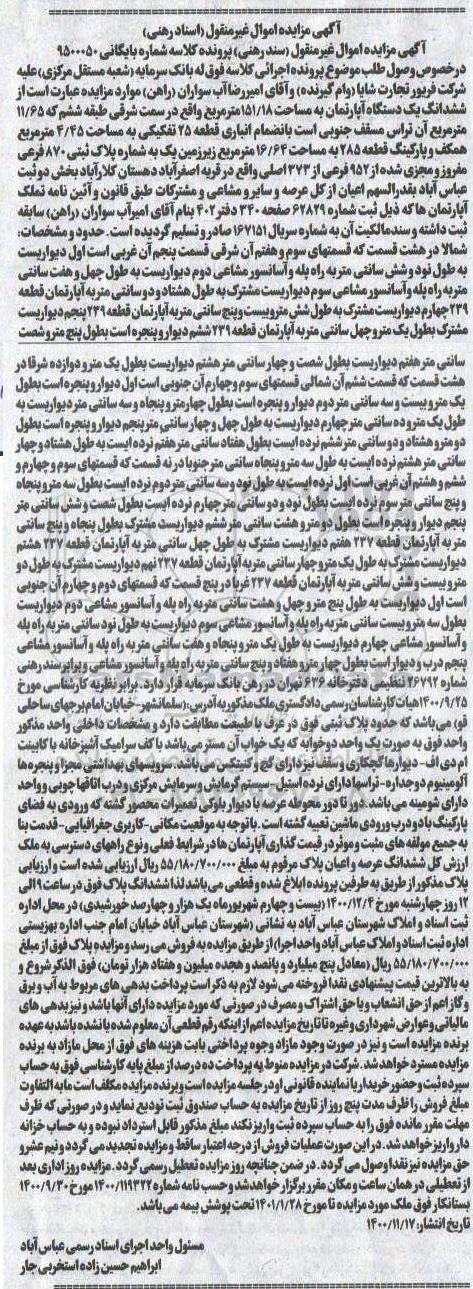 آگهی مزایده اموال غیرمنقول (اسناد رهنی)
آگهی مزایده اموال غیرمنقول (سند رهنی) پرونده کلاسه شماره بایگانی ۹۵۰۰۰۵۰
در خصوص وصول طلب موضوع پرونده اجرائی کلاسه فوق له بانک سرمایه (شعبه مستقل مرکزی) علیه
شرکت فریور تجارت شایا (وام گیرنده) و آقای امیررضا آب سواران (راهن) موارد مزایده عبارت است از
ششدانگ یک دستگاه آپارتمان به مساحت ۱۵۱/۱۸ مترمربع واقع در سمت شرقی طبقه ششم که ۱۱/۶۵
مترمربع آن تراس مسقف جنوبی است بانضمام انباری قطعه ۲۵ تفکیکی به مساحت ۴/۴۵ مترمربع
همکف و پارکینگ قطعه ۲۸۵ به مساحت ۱۶/۶۴ مترمربع زیرزمین یک به شماره پلاک ثبتی ۸۷۰ فرعی
مفروز و مجزی شده از ۹۵۲ فرعی از ۳۷۳ اصلی واقع در قریه اصغرآباد دهستان کلارآباد بخش دو ثبت
عباس آباد بقدرالسهم اعیان از کل عرصه و سایر و مشاعی و مشترکات طبق قانون و آئین نامه تملک
آپارتمان ها که ذیل ثبت شماره ۶۲۸۲۹ صفحه ۳۴۰ دفتر ۴۰۲ بنام آقای امیرآب سواران (راهن) سابقه
ثبت داشته و سند مالکیت آن به شماره سریال ۱۶۷۱۵۱ صادر و تسلیم گردیده است. حدود و مشخصات:
شمالا در هشت قسمت که قسمتهای سوم و هفتم آن شرقی قسمت پنجم آن غربی است اول دیواریست
به طول نود و شش سانتی متر به راه پله و آسانسور مشاعی دوم دیواریست به طول چهل و هفت سانتی
متر به راه پله و آسانسور مشاعی سوم دیواریست مشترک به طول هشتاد و دو سانتی متر به آپارتمان قطعه
۲۳۹ چهارم دیواریست مشترک به طول شش متر و بیست و پنج سانتی متر به آپارتمان قطعه ۲۳۹ پنجم دیواریست
مشترک بطول یک متر و چهل سانتی متر به آپارتمان قطعه ۲۳۹ ششم دیوار و پنجره است بطول پنج متر و شصت
سانتی متر هفتم دیواریست بطول شصت و چهار سانتی متر هشتم دیواریست بطول یک متر و دوازده شرقا در
هشت قسمت که قسمت ششم آن شمالی قسمتهای سوم و چهارم آن جنوبی است اول دیوار و پنجره است بطول
یک متر و بیست و سه سانتی متر دوم دیوار و پنجره است بطول چهار متر و پنجاه و سه سانتی متر دیواریست به
طول یک متر و ده سانتی متر چهارم دیواریست به طول چهل و چهار سانتی متر پنجم دیوار و پنجره است بطول
دو متر و هشتاد و دو سانتی متر ششم نرده ایست بطول هفتاد سانتی متر هفتم نرده ایست به طول هشتاد و چهار
سانتی متر هشتم نرده ایست به طول سه متر و پنجاه سانتی متر جنوبا در نه قسمت که قسمتهای سوم و چهارم و
ششم و هشتم آن غربی است اول نرده ایست به طول نود و سه سانتی متر دوم نرده ایست بطول سه متر و پنجاه
و پنج سانتی متر سوم نرده ایست بطول نود و دو سانتی متر چهارم نرده ایست بطول شصت و شش سانتی متر
پنجم دیوار و پنجره است بطول دو متر و هشت سانتی متر ششم دیواریست مشترک بطول پنجاه و پنج سانتی
متر به آپارتمان قطعه ۲۳۷ هفتم دیواریست مشترک به طول چهل سانتی متر به آپارتمان قطعه ۲۳۷ هشتم
دیواریست مشترک به طول یک متر و چهار سانتی متر به آپارتمان قطعه ۲۳۷ نهم دیواریست مشترک به طول دو
متر و بیست و شش سانتی متر به آپارتمان قطعه ۲۳۷ غربا در پنج قسمت که قسمتهای دوم و چهارم آن جنوبی
است اول دیواریست به طول پنج متر و چهل و هشت سانتی متر به راه پله و آسانسور مشاعی دوم دیواریست
بطول سه متر و بیست سانتی متر به راه پله و آسانسور مشاعی سوم دیواریست به طول نود سانتی متر به راه پله
و آسانسور مشاعی چهارم دیواریست به طول یک متر و پنجاه و هفت سانتی متر به راه پله و آسانسور مشاعی
پنجم درب و دیوار است بطول چهار متر و هفتاد و پنج سانتی متر به راه پله و آسانسور مشاعی و برابر سند رهنی
شماره ۲۶۷۹۲ تنظیمی دفترخانه ۶۳۶ تهران در رهن بانک سرمایه قرار دارد. برابر نظریه کارشناسی مورخ
۱۴۰۰/۹/۲۵ هیات کارشناسان رسمی دادگستری ملک مذکور به آدرس: (سلمانشهر-خیابان امام برجهای ساحلی
قو) می باشد که حدود پلاک ثبتی فوق در عرف با طبیعت مطابقت دارد و مشخصات داخلی واحد مذکور
واحد فوق به صورت یک واحد دوخوابه که یک خواب آن مستر می باشد با کف سرامیک آشپزخانه با کابینت
ام دی اف- دیوارها گچکاری و سقف نیز دارای گچ و کنیتکس می باشد. سرویسهای بهداشتی مجزا و پنجره ها
آلومینیوم دوجداره- تراسها دارای نرده استیل- سیستم گرمایش و سرمایش مرکزی و درب اتاقها چوبی و واحد
دارای شومینه می باشد. دور تا دور محوطه عرصه با دیوار بلوکی تعمیرات محصور گشته که ورودی به فضای
پارکینگ با دو درب ورودی ماشین تعبیه گشته است. با توجه به موقعیت مکانی-کاربری جغرافیایی-قدمت بنا
به جمیع مولفه های مثبت و موثر در قیمت گذاری آپارتمان ها در شرایط فعلی و نوع راههای دسترسی به ملک
ارزش کل ششدانگ عرصه و اعیان پلاک مرقوم به مبلغ ۵۵/۱۸۰/۷۰۰/۰۰۰ ریال ارزیابی شده است و ارزیابی
پلاک مذکور از طریق به طرفین پرونده ابلاغ شده و قطعی می باشد لذا ششدانگ پلاک فوق در ساعت ۹ الی
۱۲ روز چهارشنبه مورخ ۱۴۰۰/۱۲/۴ (بیست و چهارم شهریورماه یک هزار و چهارصد خورشیدی) در محل اداره
ثبت اسناد و املاک شهرستان عباس آباد به نشانی (شهرستان عباس آباد خیابان امام جنب اداره بهزیستی
اداره ثبت اسناد و املاک عباس آباد واحد اجرا) از طریق مزایده به فروش می رسد و مزایده پلاک فوق از مبلغ
۵۵/۱۸۰/۷۰۰/۰۰۰ ریال (معادل پنج میلیارد و پانصد و هجده میلیون و هفتاد هزار تومان) فوق الذکر شروع و
به بالاترین قیمت پیشنهادی نقدا فروخته می شود لازم به ذکر است پرداخت بدهی های مربوط به آب و برق
و گاز اعم از حق انشعاب و یا حق اشتراک و مصرف در صورتی که مورد مزایده دارای آنها باشد و نیز بدهی های
مالیاتی و عوارض شهرداری و غیره تا تاریخ مزایده اعم از اینکه رقم قطعی آن معلوم شده یا نشده باشد به عهده
برنده مزایده است و نیز در صورت وجود مازاد وجوه پرداختی بابت هزینه های فوق از محل مازاد به برنده
مزایده مسترد خواهد شد. شرکت در مزایده منوط به پرداخت ده درصد از مبلغ پایه کارشناسی فوق به حساب
سپرده ثبت و حضور خریدار یا نماینده قانونی او در جلسه مزایده است و برنده مزایده مکلف است مابه التفاوت
مبلغ فروش را ظرف مدت پنج روز از تاریخ مزایده به حساب صندوق ثبت تودیع نماید و در صورتی که ظرف
مهلت مقرر مانده فوق را به حساب سپرده ثبت واریز نکند مبلغ مذکور قابل استرداد نبوده و به حساب خزانه
دار واریز خواهد شد. در این صورت عملیات فروش از درجه اعتبار ساقط و مزایده تجدید می گردد و نیم عشر و
حق مزایده نیز نقدا وصول می گردد. در ضمن چنانچه روز مزایده تعطیل رسمی گردد. مزایده روز اداری بعد
از تعطیلی در همان ساعت و مکان مقرر برگزار خواهد شد و حسب نامه شماره ۱۴۰۰/۱۱۹۳۲۲ مورخ ۱۴۰۰/۹/۳۰
بستانکار فوق ملک مورد مزایده تا مورخ ۱۴۰۱/۱/۲۸ تحت پوشش بیمه می باشد.
تاریخ انتشار: ۱۴۰۰/۱۱/۱۷
مسئول واحد اجرای اسناد رسمی عباس آباد
ابراهیم حسین زاده استخربی جار